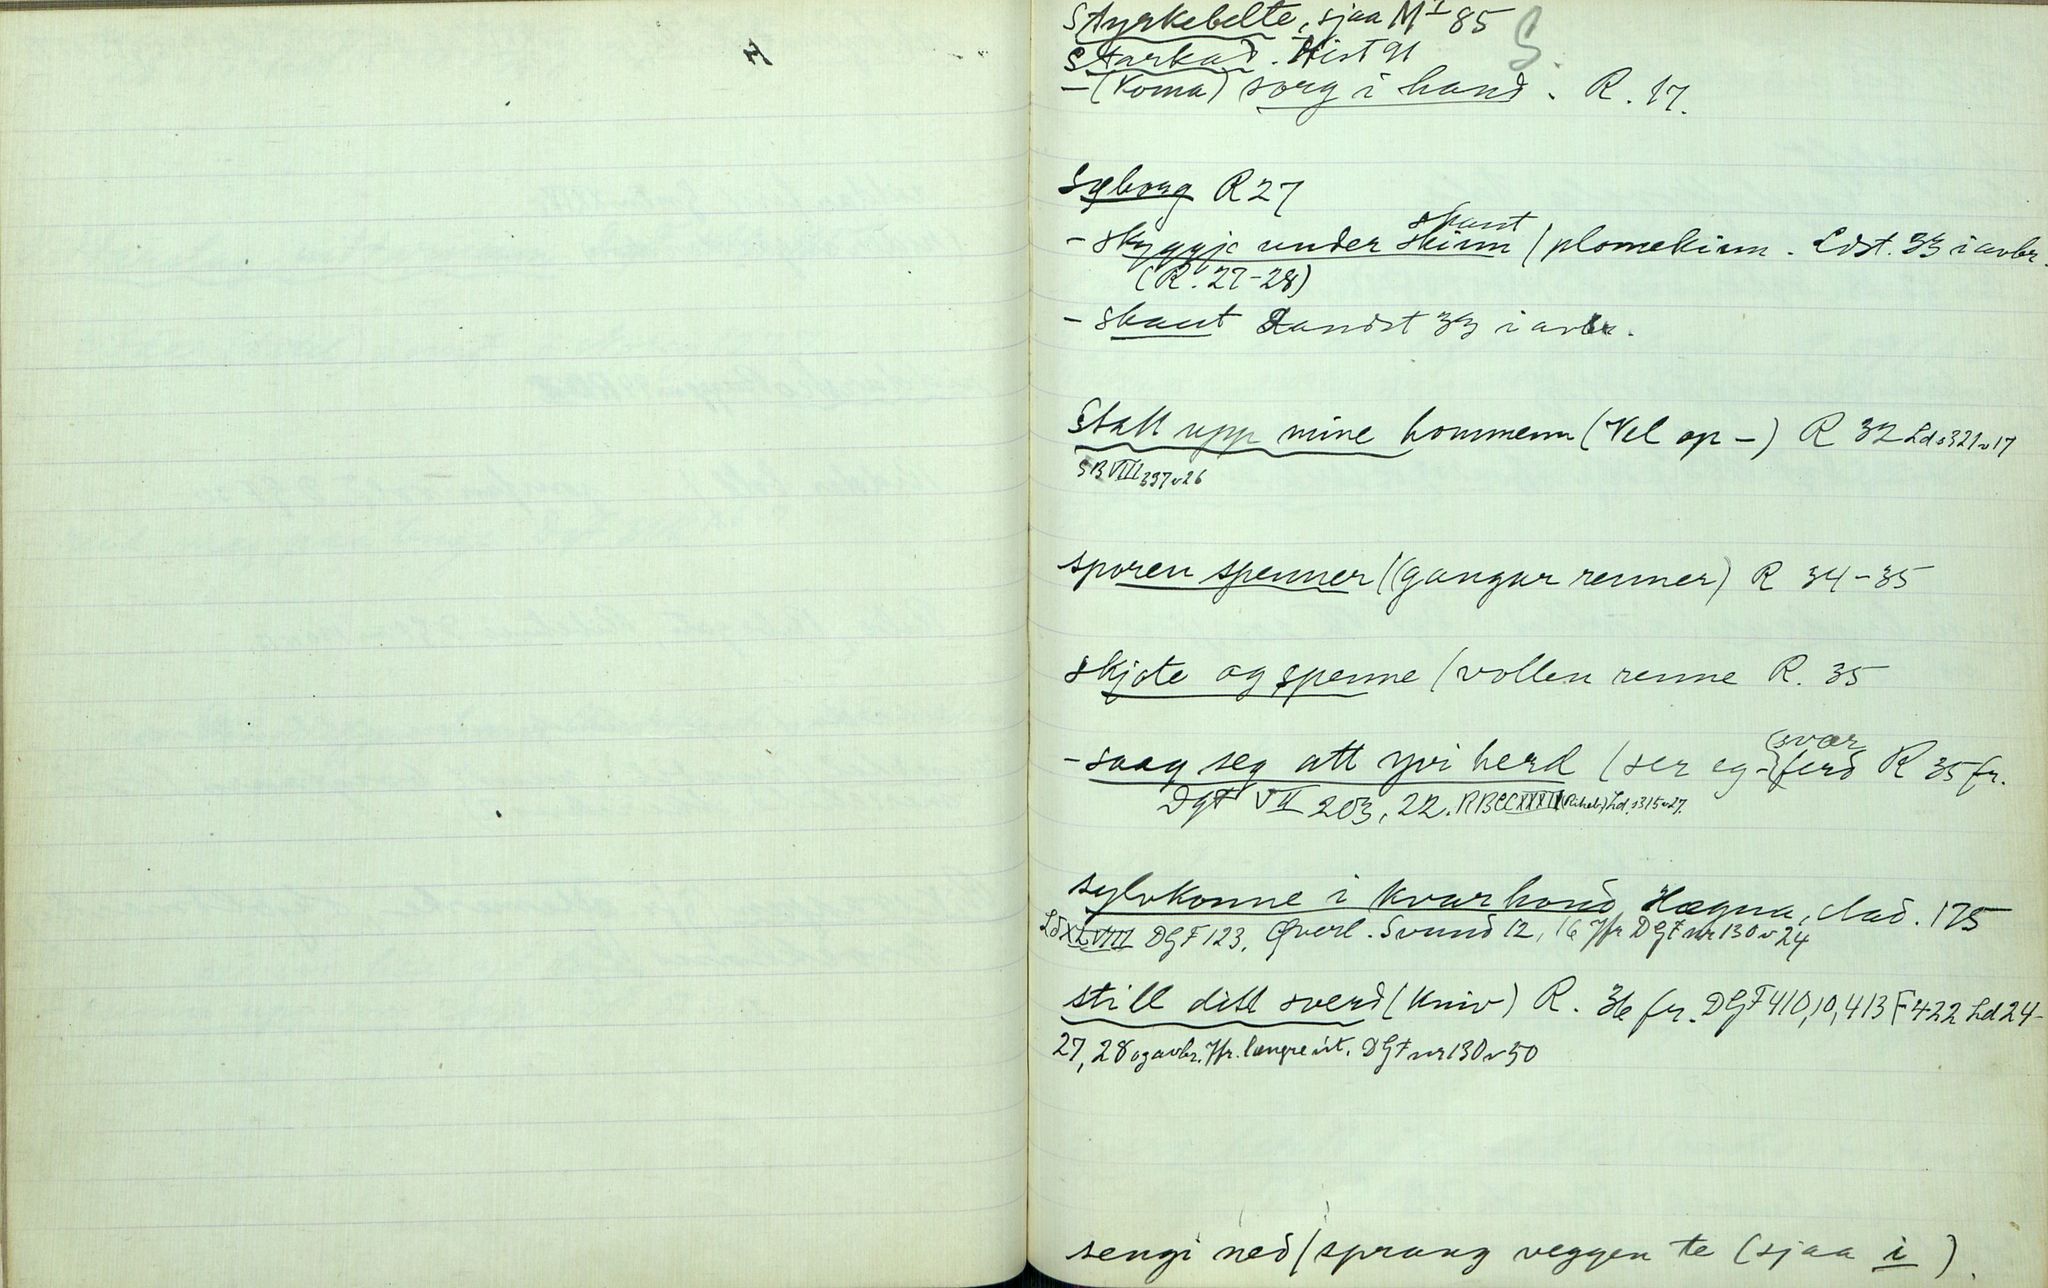 Styrkebelte, sjaa M I 85
S.
Starkad. Hist 91
- (Koma) sorg i hand. R. 17.
Syborg R 27
- skyggje under skinn / plomekinn. Ldst. 33 i avbr.
skaut
(R. 27-28)
- skaut Landst 33 i avbr.
Statt upp mine hommenn (Vel op -) R 32 Ld s 321 v 17
SB VIII 397 v 26
sporen spenner (gangar renner) R 34-35
skjote og spenne / vollen renne R. 35
- saag seg att yvi herd / ser eg - ferd R 35 fr.
svær
DgF VII 203, 22. Ld. s 315 v 27.
sylvkonne i kvar hond Hægna, Lad. 175
Ld XLVIII DGF 123, Qverl. Svund 12, 16 Jfr DGF nr 130 v 24
still ditt sverd (kniv) R. 36 fr. DGF 410, 10, 413 F 422 Ld 24-
27, 28 og avbr. Jfr. længre út. DGF nr 130 v 50
sengi ned / sprang veggen te (sjaa i)